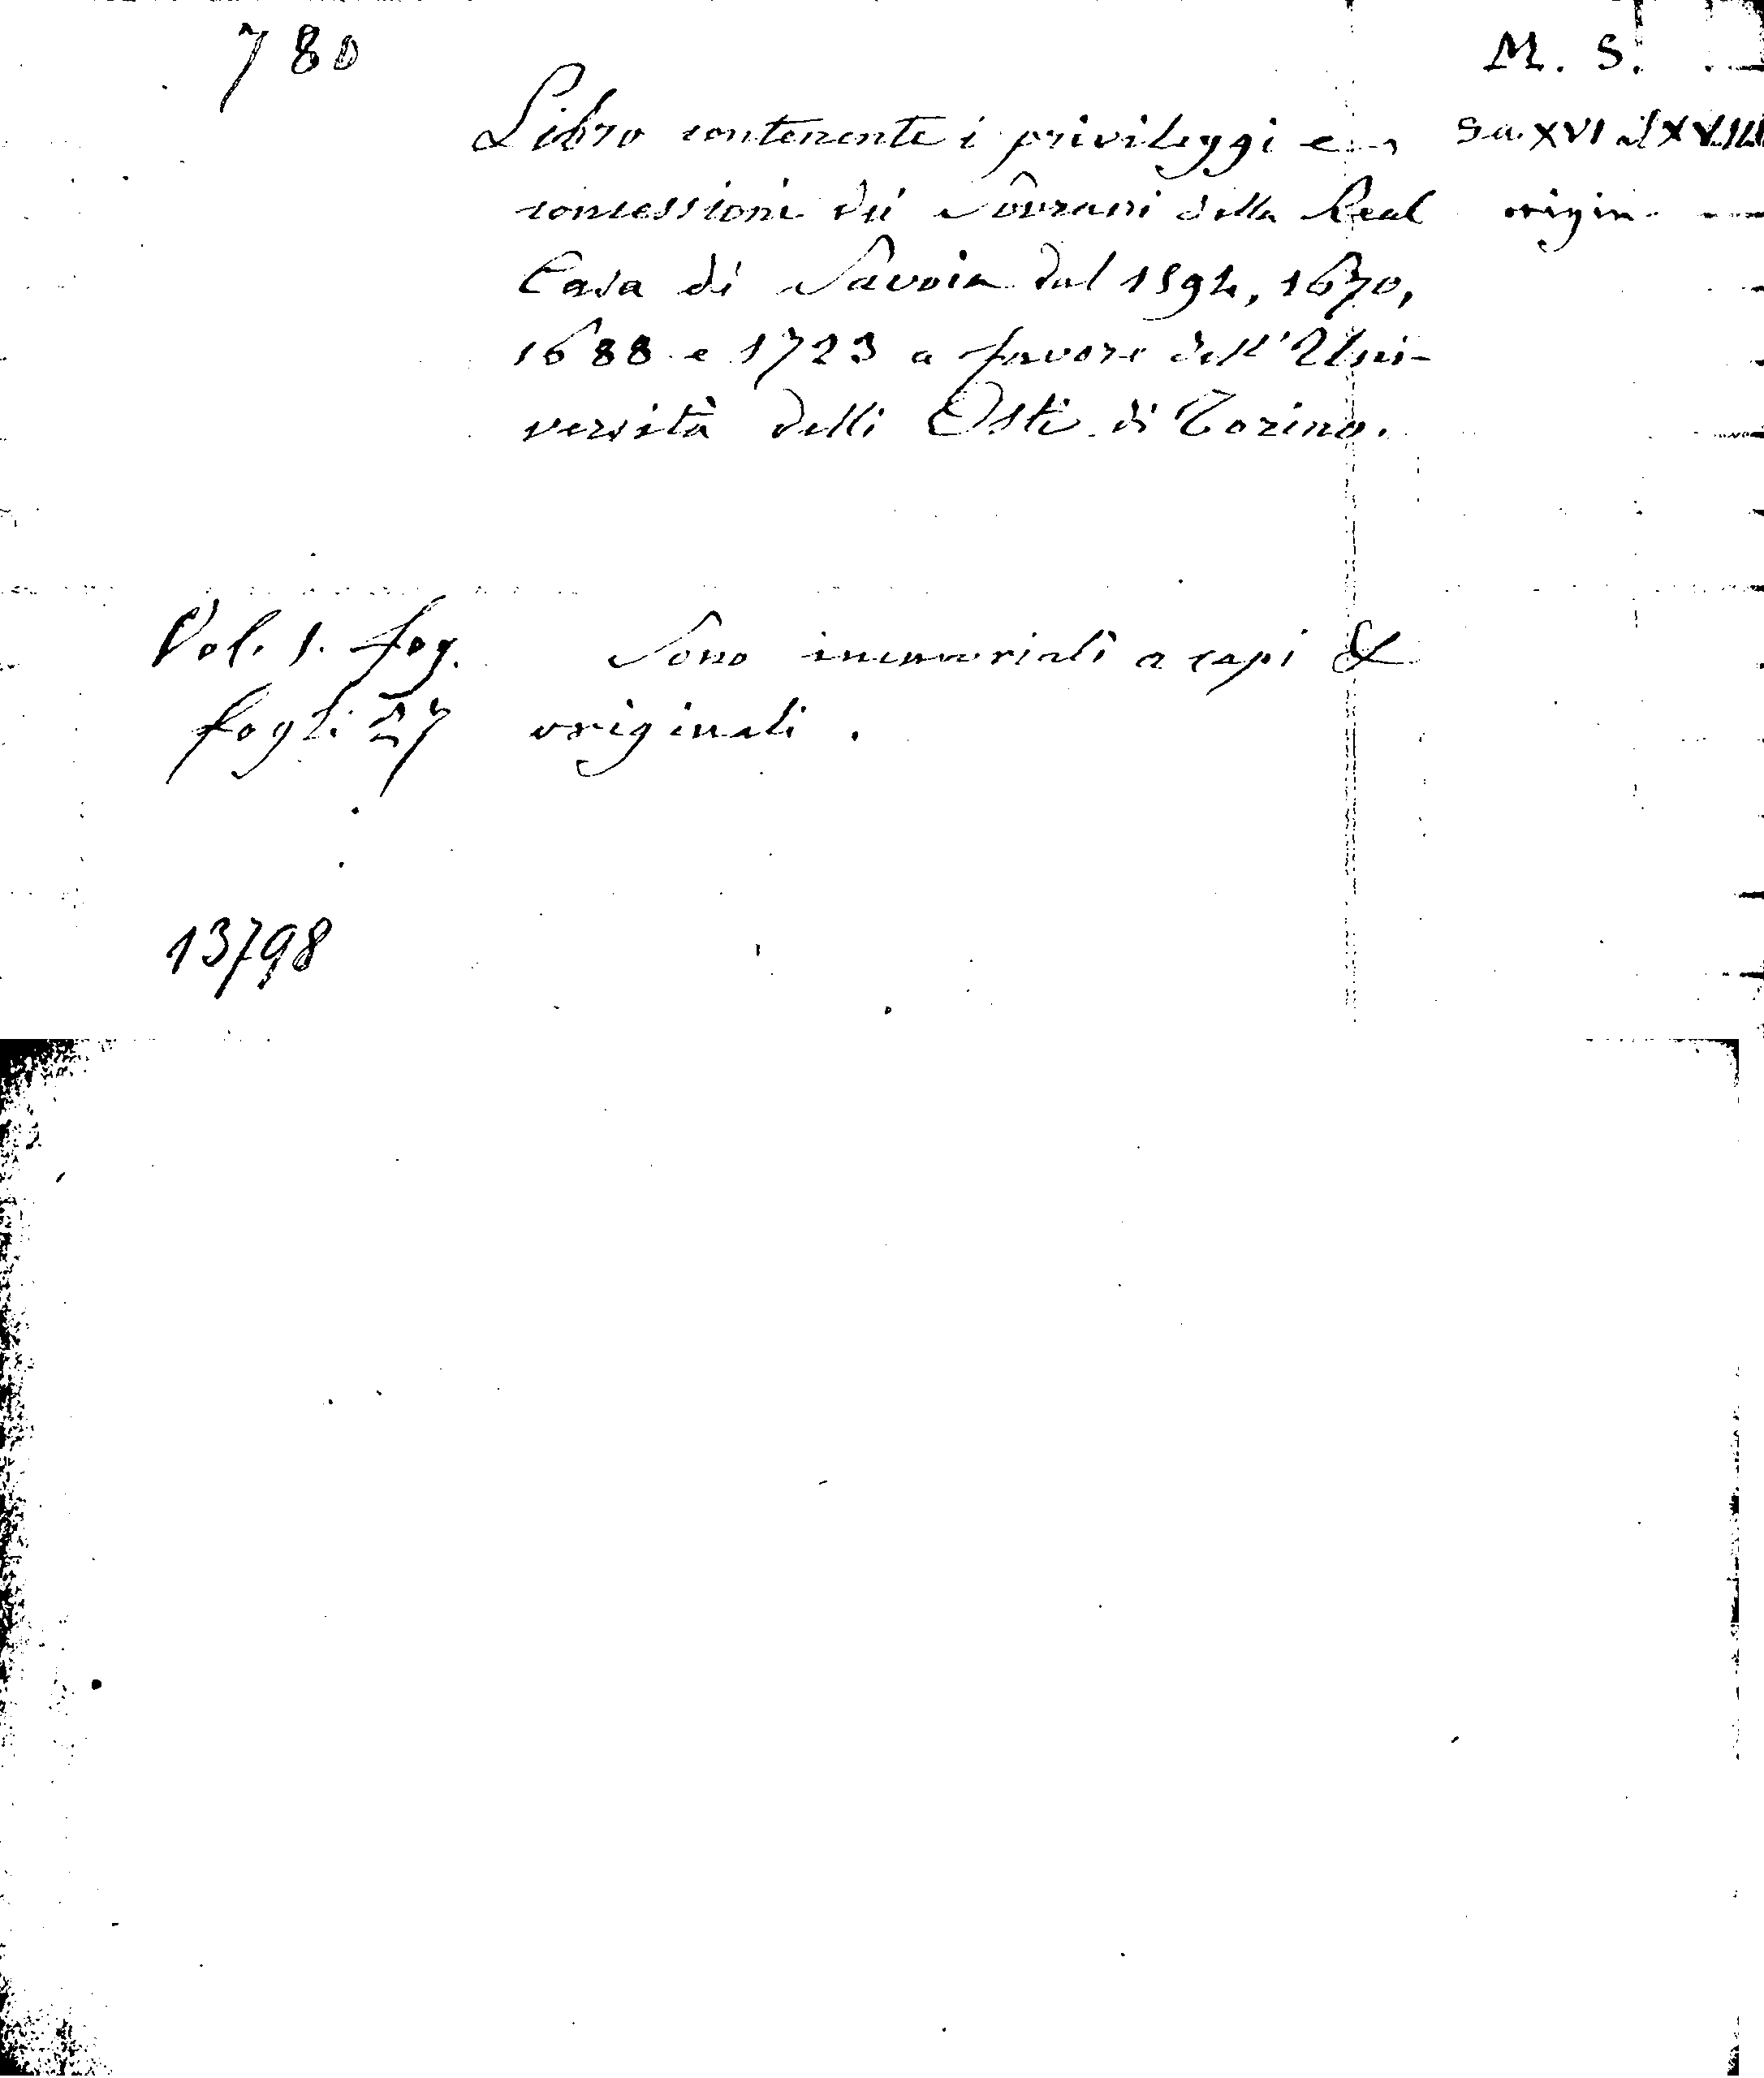 780
M. S.
Libro contenente i privileggi e
concessioni dei Sovrani della Real
Casa di Savoia dal 1594, 1670,
1688 e 1723 a favore dell'Uni-
versità delli Osti di Torino.
Sec. XVI al XVIII
origin.
Vol. 1. fog.
fogli 27
Sono memoriali a capi &
originali.
13798